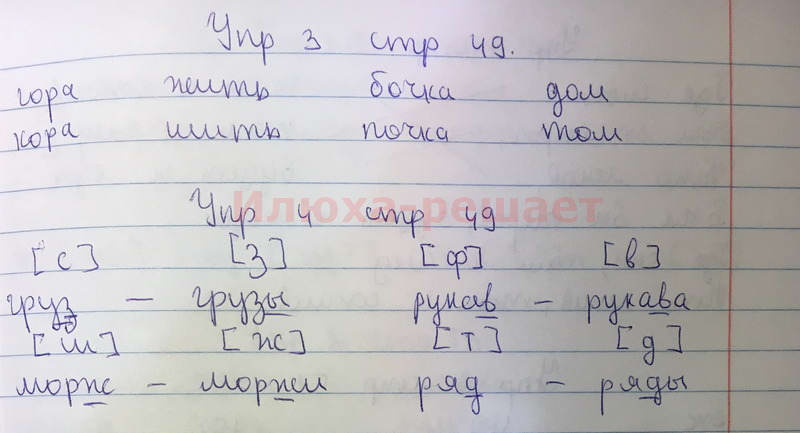 Упр 3 стр 49.
гора жить бочка дом
кора шить почка том
Илюха-решает
Упр 4 стр 49
[с] [з] [ф] [в]
груз – грузы рукав – рукава
[ш] [ж] [т] [д]
морж – моржи ряд – ряды